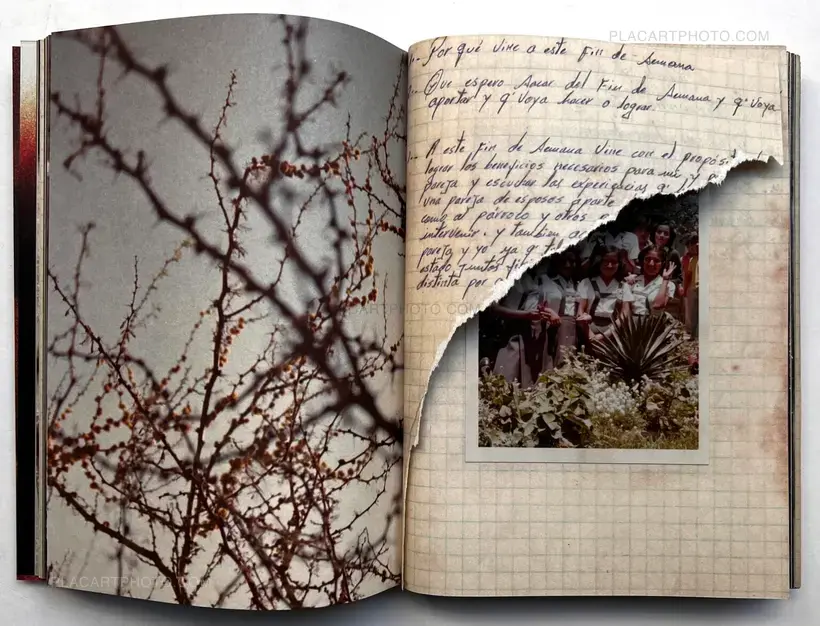 PLACARTPHOTO.COM
1.- Por qué vine a este Fin de Semana
2.- Que espero Sacar del Fin de Semana y q' Voya
aportar y q' Voya hacer o lograr.
1.- A este Fin de Semana Vine con el propósi
lograr los beneficios necesarios para mi y
pareja y escuchar las experiencias q'
Una pareja de esposos aparte
como al párroco y otros
intervenir. y tambien
pareja y yo ya q'
estado juntos
distinta por
PLACARTPHOTO.COM
PLACARTPHOTO.COM